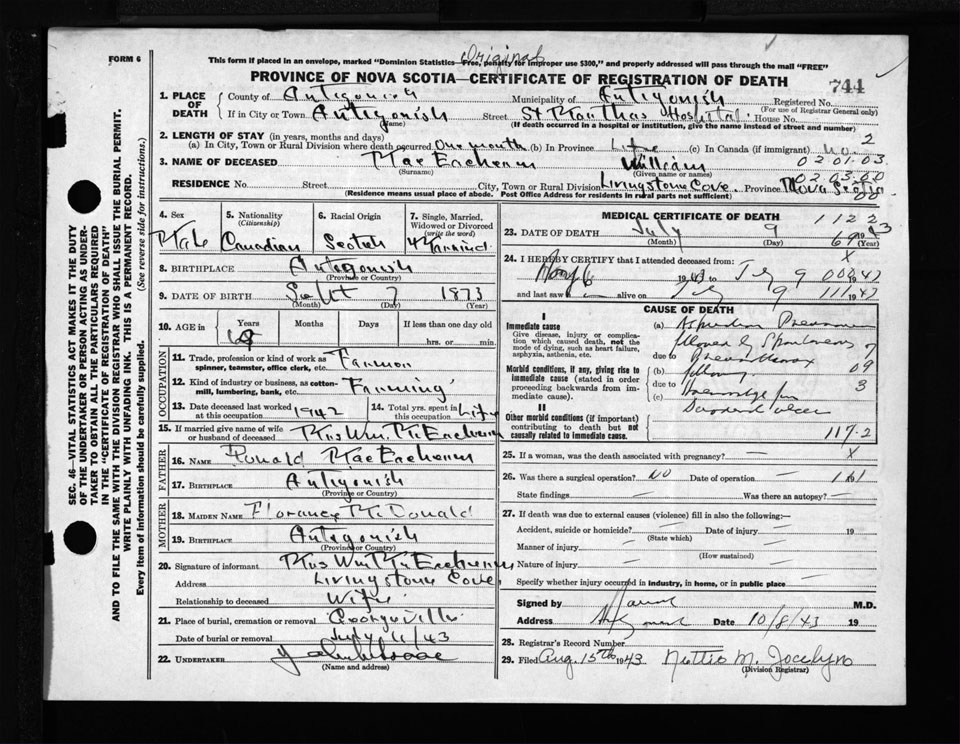 Original
FORM 6
This form if placed in an envelope, marked "Dominion Statistics—Free, penalty for improper use $300," and properly addressed will pass through the mail "FREE"
PROVINCE OF NOVA SCOTIA—CERTIFICATE OF REGISTRATION OF DEATH 744
1. PLACE OF DEATH County of Antigonish Municipality of Antigonish Registered No.
(For use of Registrar General only)
If in City or Town Antigonish Street St Marthas Hospital House No.
(Name) (If death occurred in a hospital or institution, give the name instead of street and number)
2. LENGTH OF STAY (in years, months and days)
(a) In City, Town or Rural Division where death occurred One month (b) In Province Life (c) In Canada (if immigrant) no. 2
3. NAME OF DECEASED MacEachern William 02.01.03
(Surname) (Given name or names) 02.03.00
RESIDENCE No. Street City, Town or Rural Division Livingstone Cove. Province Nova Scotia 00
(Residence means usual place of abode. Post Office Address for residents in rural parts not sufficient)
4. Sex Male
5. Nationality (Citizenship) Canadian
6. Racial Origin Scotch
7. Single, Married, Widowed or Divorced (write the word) Married
8. BIRTHPLACE Antigonish
(Province or Country)
9. DATE OF BIRTH Sept 7 1873
(Month) (Day) (Year)
10. AGE in Years Months Days If less than one day old
69 hrs. or min.
OCCUPATION
11. Trade, profession or kind of work as spinner, teamster, office clerk, etc. Farmer
12. Kind of industry or business, as cotton-mill, lumbering, bank, etc. Farming
13. Date deceased last worked at this occupation 1942
14. Total yrs. spent in this occupation Life
15. If married give name of wife or husband of deceased Mrs Wm. McEachern
FATHER
16. NAME Ronald MacEachern
17. BIRTHPLACE Antigonish
(Province or Country)
MOTHER
18. MAIDEN NAME Florance McDonald
19. BIRTHPLACE Antigonish
(Province or Country)
20. Signature of informant Mrs Wm McEachern
Address Livingstone Cove
Relationship to deceased Wife
21. Place of burial, cremation or removal Georgeville
Date of burial or removal July 11/43
22. UNDERTAKER
(Name and address)
MEDICAL CERTIFICATE OF DEATH 1122
23. DATE OF DEATH July 9 1943
(Month) (Day) 69 (Year)
24. I HEREBY CERTIFY that I attended deceased from: X
and last saw alive on 9 111 19
CAUSE OF DEATH
I
Immediate cause
Give disease, injury or complication which caused death, not the mode of dying, such as heart failure, asphyxia, asthenia, etc.
Morbid conditions, if any, giving rise to immediate cause (stated in order proceeding backwards from immediate cause).
II
Other morbid conditions (if important) contributing to death but not causally related to immediate cause.
(a) Pneumonia
7
due to
(b) 09
due to 3
(c)
117.2
25. If a woman, was the death associated with pregnancy? X
26. Was there a surgical operation? NO Date of operation 19
State findings Was there an autopsy?
27. If death was due to external causes (violence) fill in also the following:—
Accident, suicide or homicide? Date of injury 19
(State which)
Manner of injury
(How sustained)
Nature of injury
Specify whether injury occurred in industry, in home, or in public place
Signed by M.D.
Address Antigonish Date 10/8/43 19
28. Registrar's Record Number
29. Filed Aug. 15th 1943 Nettie M. Jocelyn
(Division Registrar)
SEC. 46—VITAL STATISTICS ACT MAKES IT THE DUTY OF THE UNDERTAKER OR PERSON ACTING AS UNDERTAKER TO OBTAIN ALL THE PARTICULARS REQUIRED IN THE "CERTIFICATE OF REGISTRATION OF DEATH" AND TO FILE THE SAME WITH THE DIVISION REGISTRAR WHO SHALL ISSUE THE BURIAL PERMIT.
WRITE PLAINLY WITH UNFADING INK. THIS IS A PERMANENT RECORD.
Every item of Information should be carefully supplied. (See reverse side for instructions.)